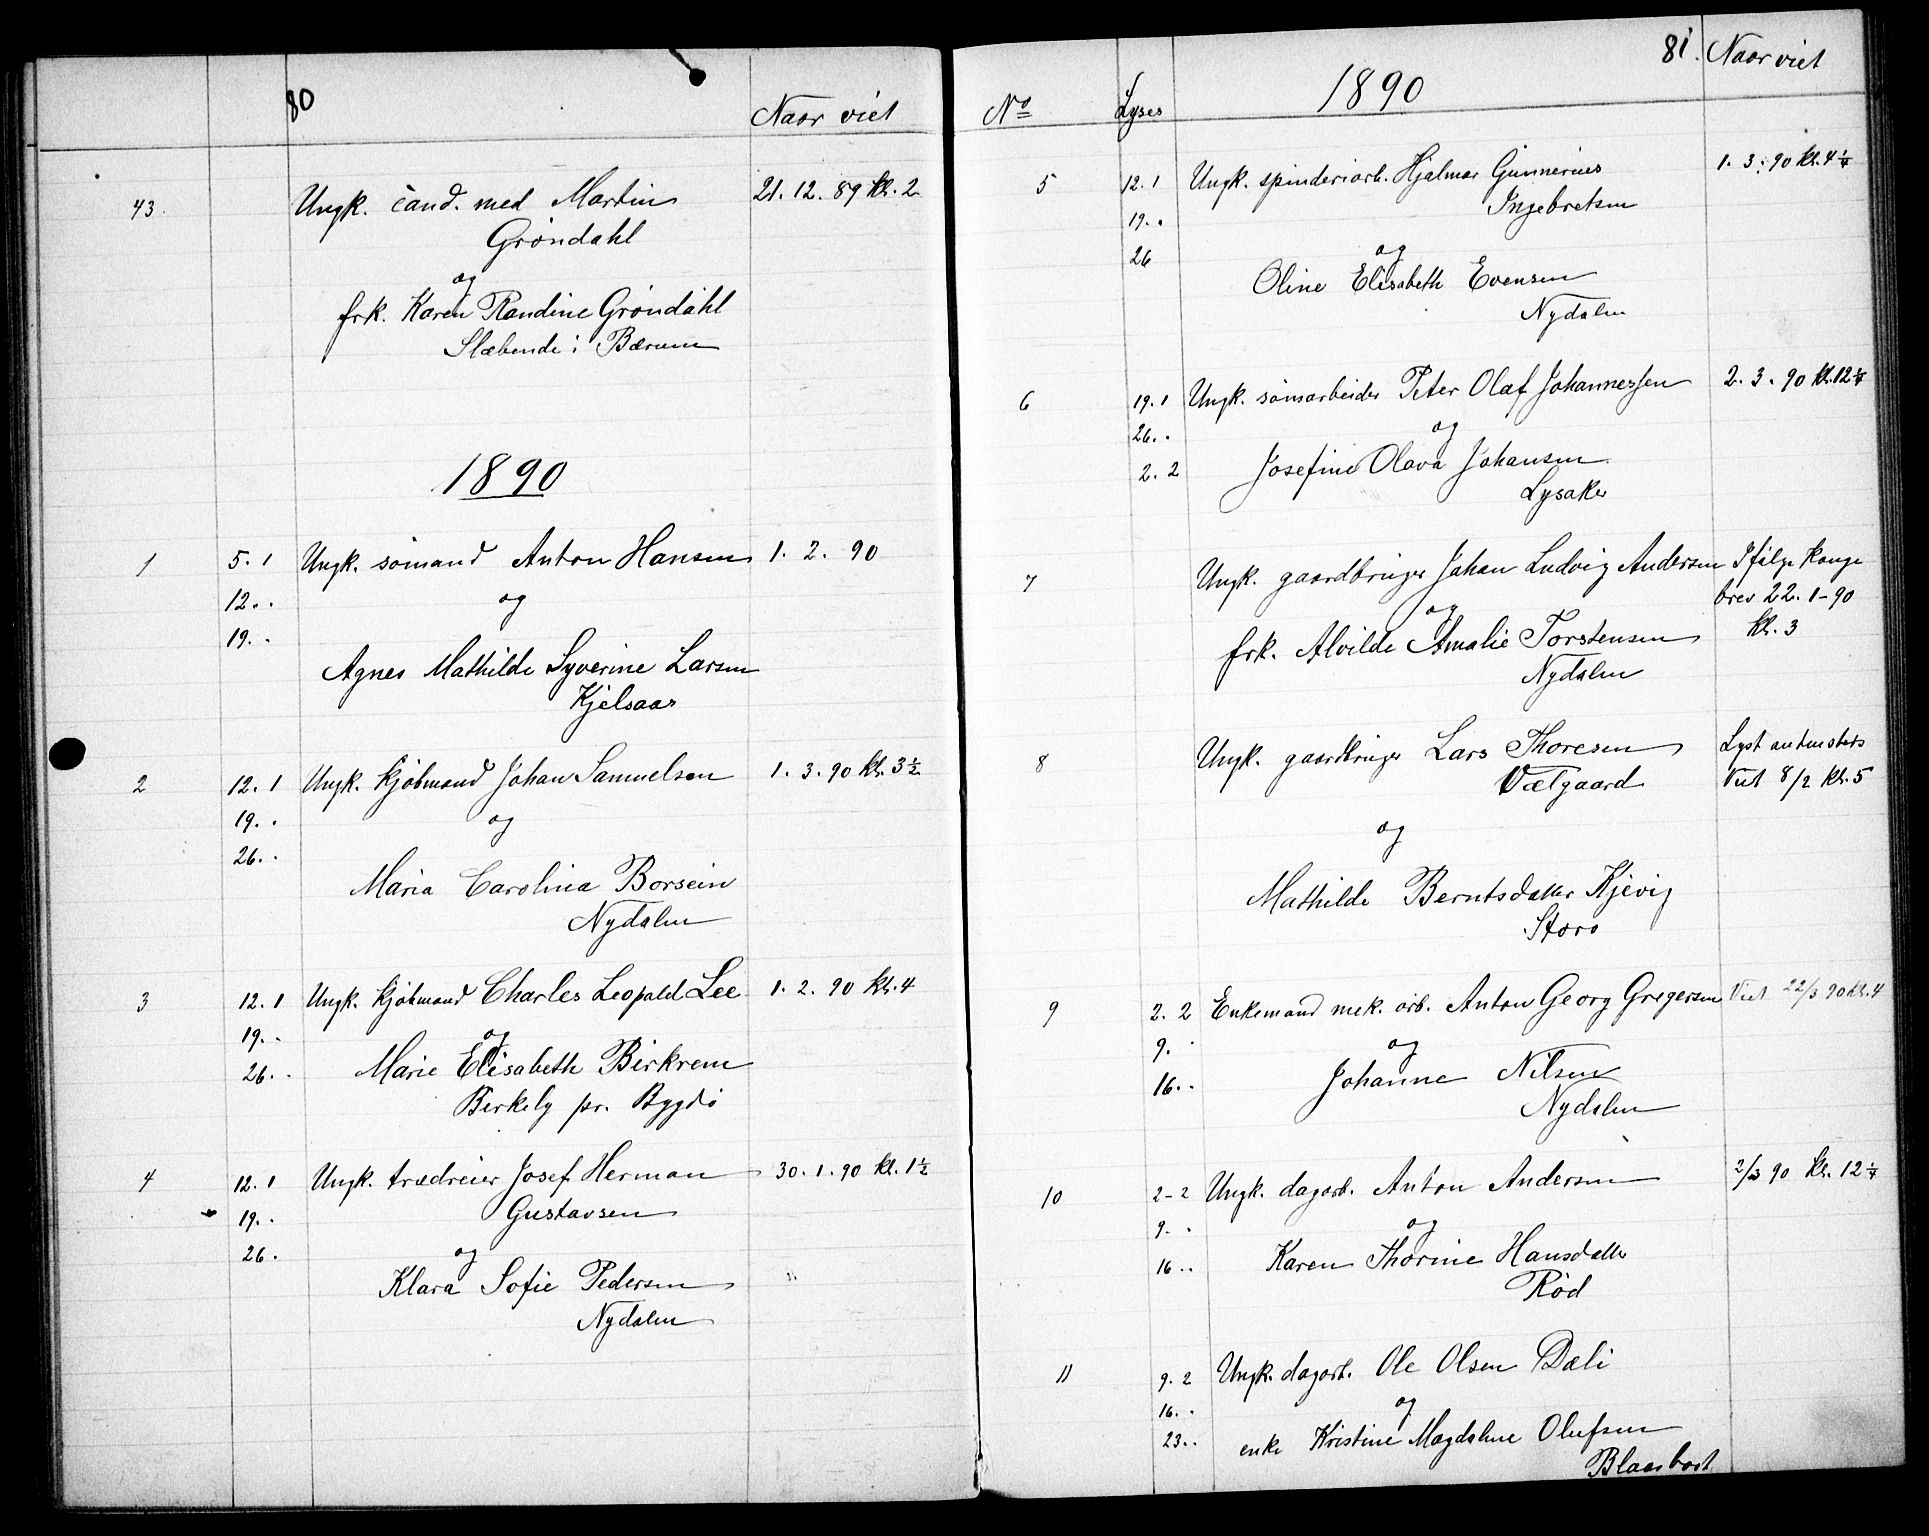 80
Naar viet
43 Ungk. cand. med Martin 21. 12. 89 kl. 2
Grøndahl
og
frk. Karen Randine Grøndahl
Slæbende i Bærum
1890
1 5. 1 Ungk. sømand Anton Hansen 1. 2. 90
12. . og
19. .
Agnes Mathilde Syverine Larsen
Kjelsaas
2 12. 1 Ungk. kjøbmand Johan Samuelson 1. 3. 90 kl. 3 ½
19. . og
26. .
Maria Carolina Borsein
Nydalen
3 12. 1 Ungk. kjøbmand Charles Leopold Lee 1. 2. 90 kl. 4
19. . og
26. . Marie Elisabeth Birkrem
Birkely pr. Bygdø
4 12. 1 Ungk. trædreier Josef Herman 30. 1. 90 kl. 1 ½
19. . Gustavsen
26. og
Klara Sofie Pedersen
Nydalen
81. Naar viet
No Lyses 1890
5 12. 1 Ungk. spinderiarb. Hjalmar Gunnerius 1. 3. 90 kl. 4 ¼
19. . Ingebretsen
26 og
Oline Elisabeth Evensen
Nydalen
6 19. 1 Ungk. sømarbeider Peter Olaf Johannessen 2. 3. 90 kl. 12 ¼
26. . og
2. 2 Josefine Olava Johansen
Lysaker
7 Ungk. gaardbruger Johan Ludvig Andersen Ifølge Konge
og brev 22. 1-90
frk. Alvilde Amalie Torstensen kl. 3
Nydalen
8 Ungk. gaardbruger Lars Thoresen Lyst andensteds
Vælgaard Viet 8/2 kl. 5
og
Mathilde Berntsdatter Kjevig
Storo
9 2. 2 Enkemand mek. arb. Anton Georg Gregersen Viet 22/3 90 kl. 4
9. . og
16. . Johanne Nilsen
Nydalen
10 2-2 Ungk. dagarb. Anton Andersen 2/3 90 kl. 12 ¼
9. . og
16 . . Karen Thorine Hansdatter
Rød
11 9. 2 Ungk. dagarb. Ole Olsen Dæli
16. . og
23. . enke Kristine Magdalene Olufsen